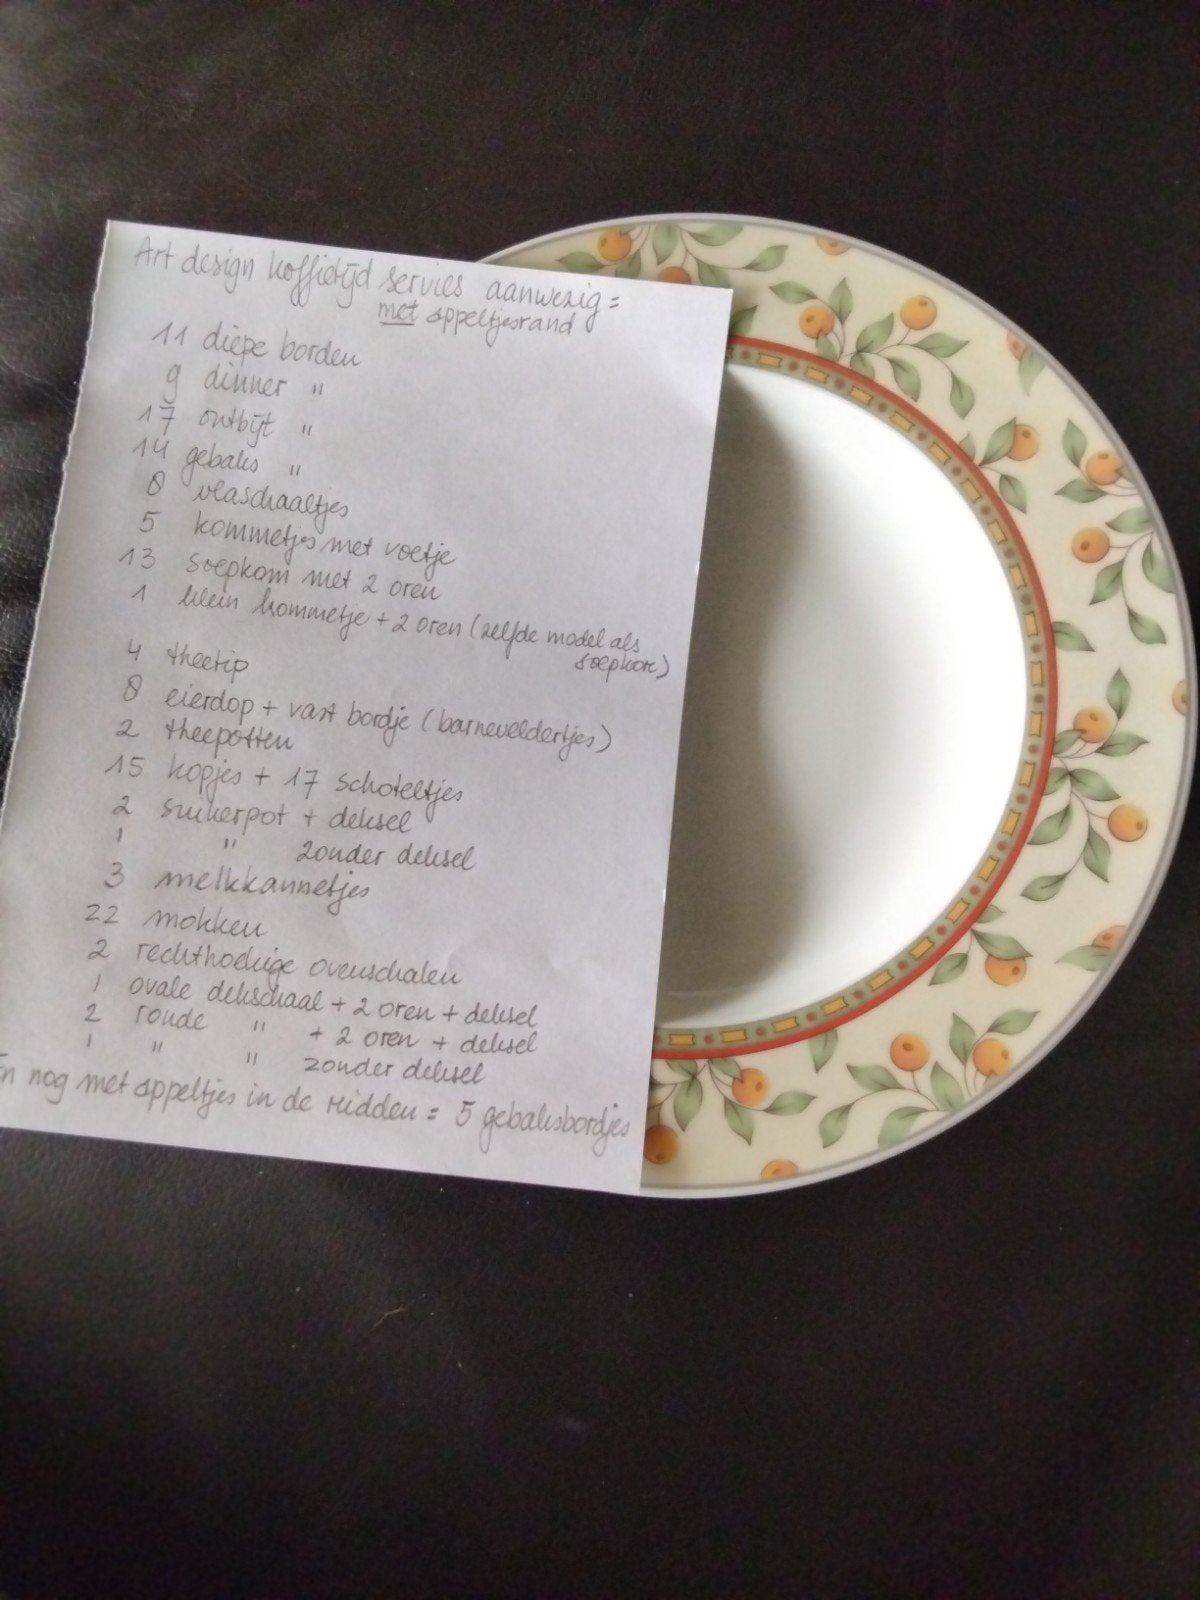 Art design koffietijd servies aanwezig =
met appeltjesrand
11 diepe borden
9 dinner "
17 ontbijt "
14 gebaks "
8 vlaschaaltjes
5 kommetjes met voetje
13 soepkom met 2 oren
1 klein kommetje + 2 oren (zelfde model als
soepkom)
4 theetip
8 eierdop + vast bordje (barneveldertjes)
2 theepotten
15 kopjes + 17 schoteltjes
2 suikerpot + deksel
1 " zonder deksel
3 melkkannetjes
22 mokken
2 rechthoekige ovenschalen
1 ovale dekschaal + 2 oren + deksel
2 ronde " + 2 oren + deksel
1 " " zonder deksel
en nog met appeltjes in de midden = 5 gebaksbordjes